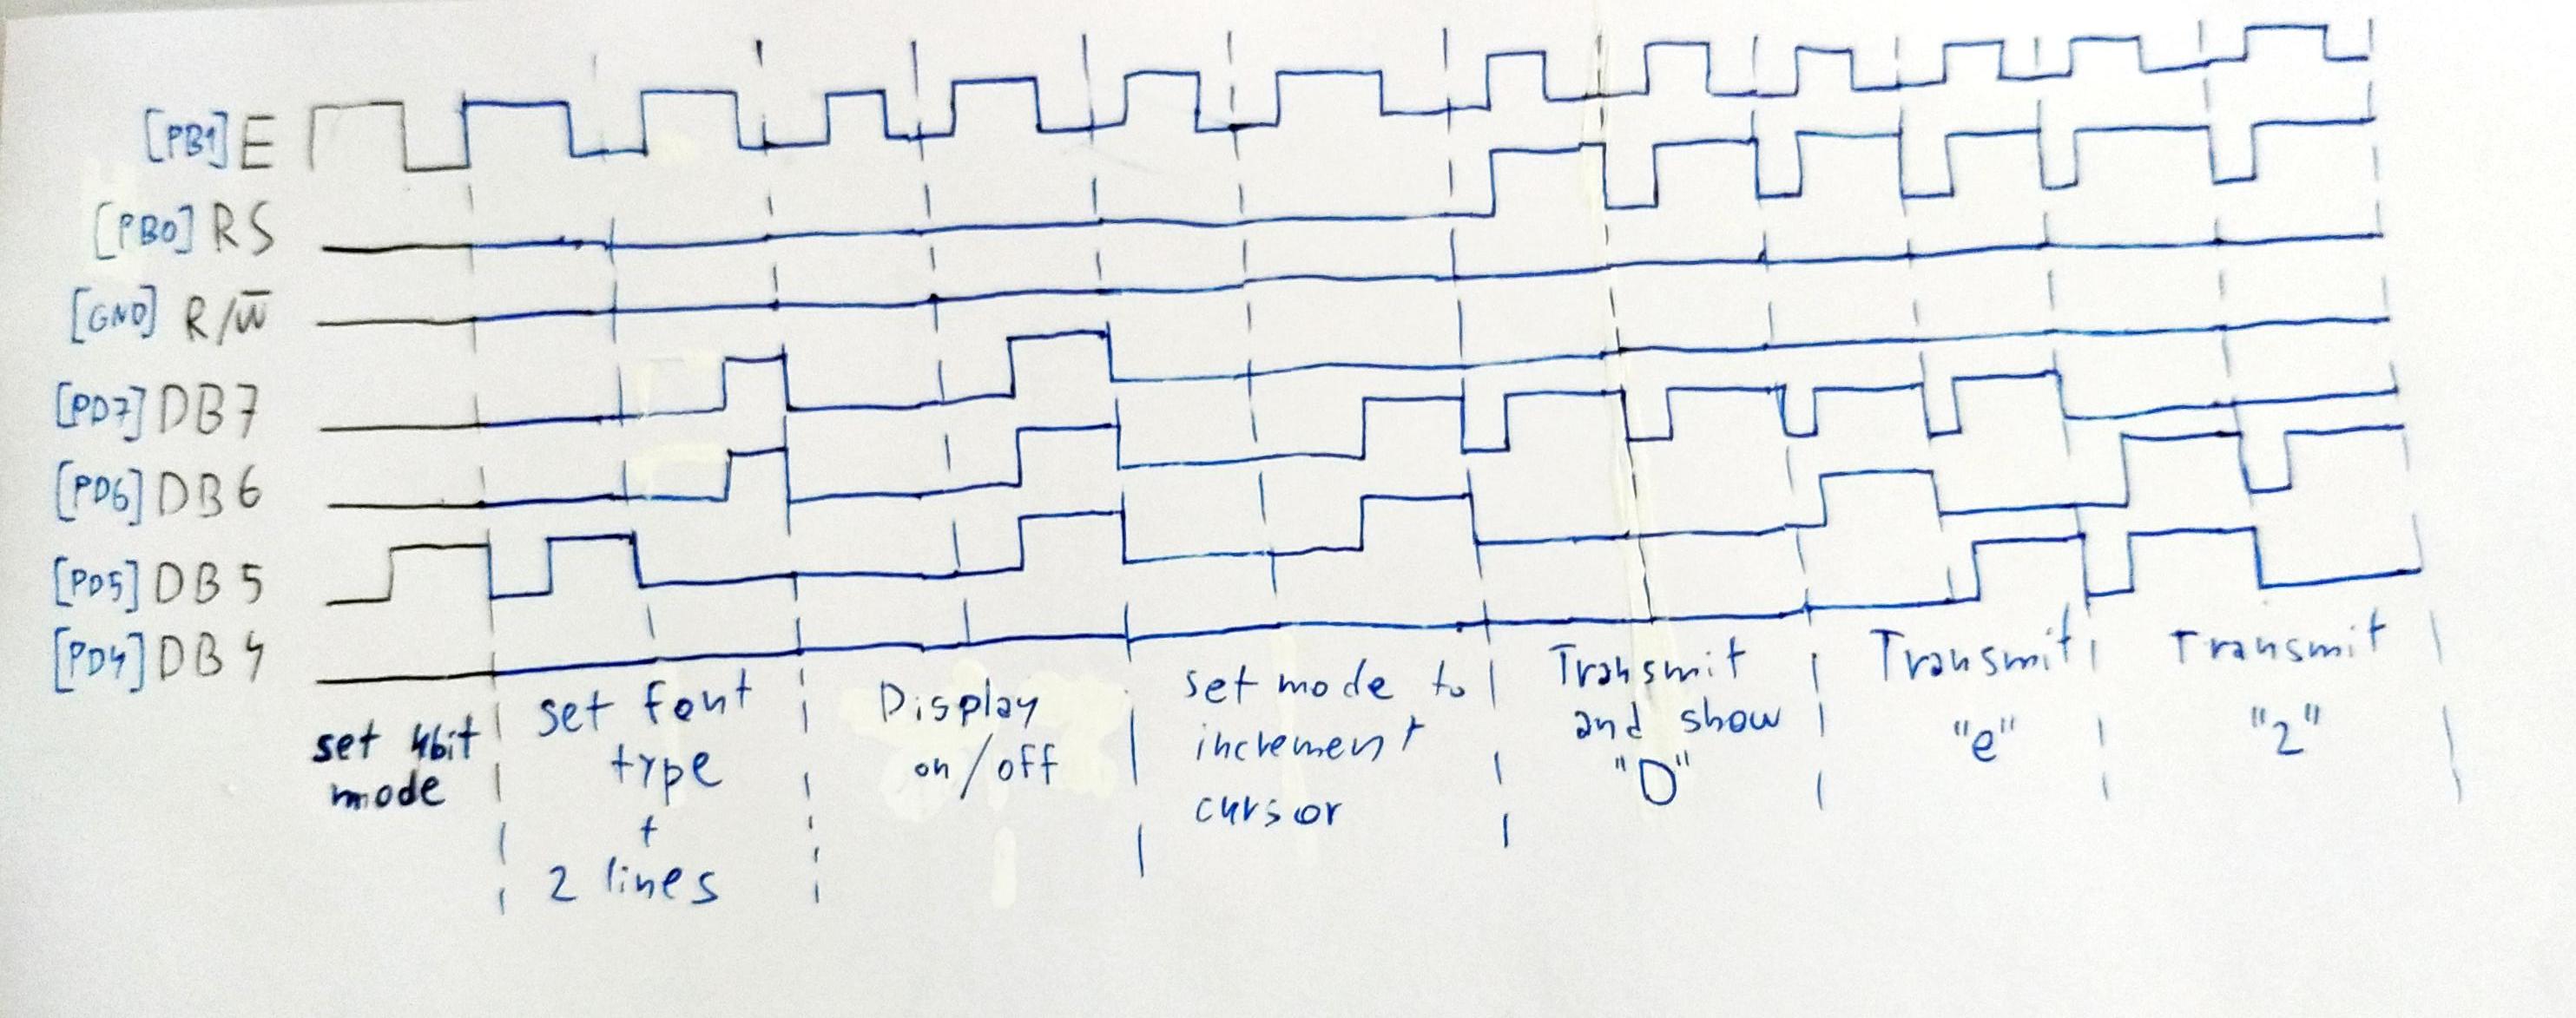 [PB1] E
[PB0] RS
[GND] R/W̅
[PD7] DB7
[PD6] DB6
[PD5] DB5
[PD4] DB4
set 4bit
mode
set font
type
+
2 lines
Display
on/off
set mode to
increment
cursor
Transmit
and show
"D"
Transmit
"e"
Transmit
"2"